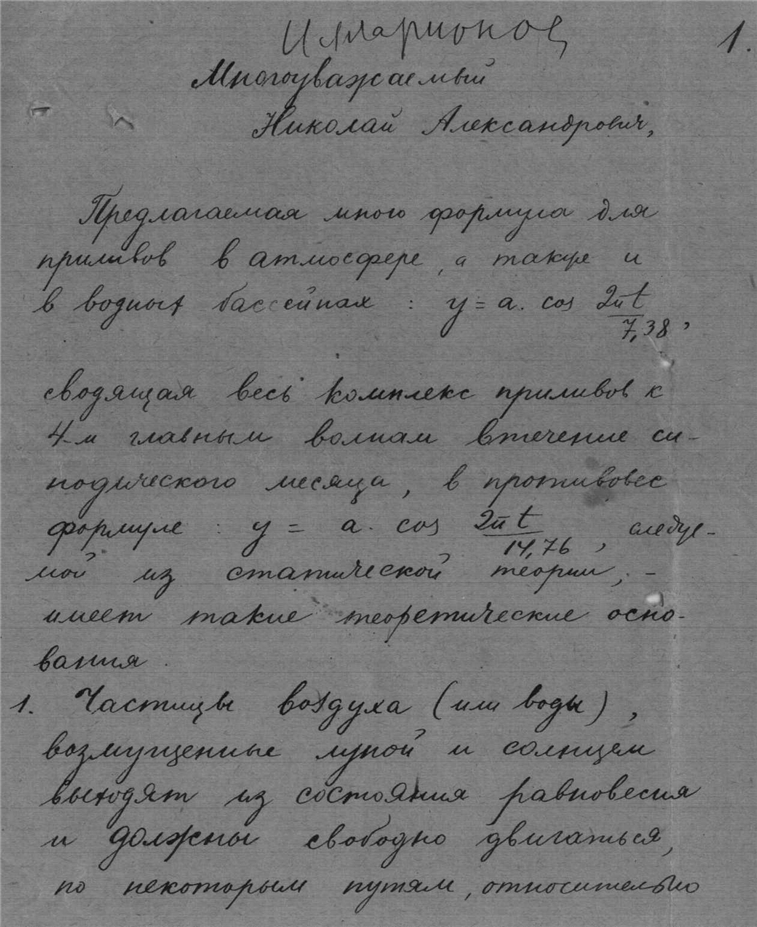 Илларионов
1.
Многоуважаемый
Николай Александрович,
Предлагаемая мною формула для
приливов в атмосфере, а также и
в водных бассейнах : y = a. cos 2πt/7,38,
сводящая весь комплекс приливов к
4-м главным волнам втечение си-
нодического месяца, в противовес
формуле : y = a. cos 2πt/14,76, следуе-
мой из статической теории, -
имеет такие теоретические осно-
вания.
1. Частицы воздуха (или воды),
возмущенные луной и солнцем
выходят из состояния равновесия
и должны свободно двигаться,
по некоторым путям, относительно